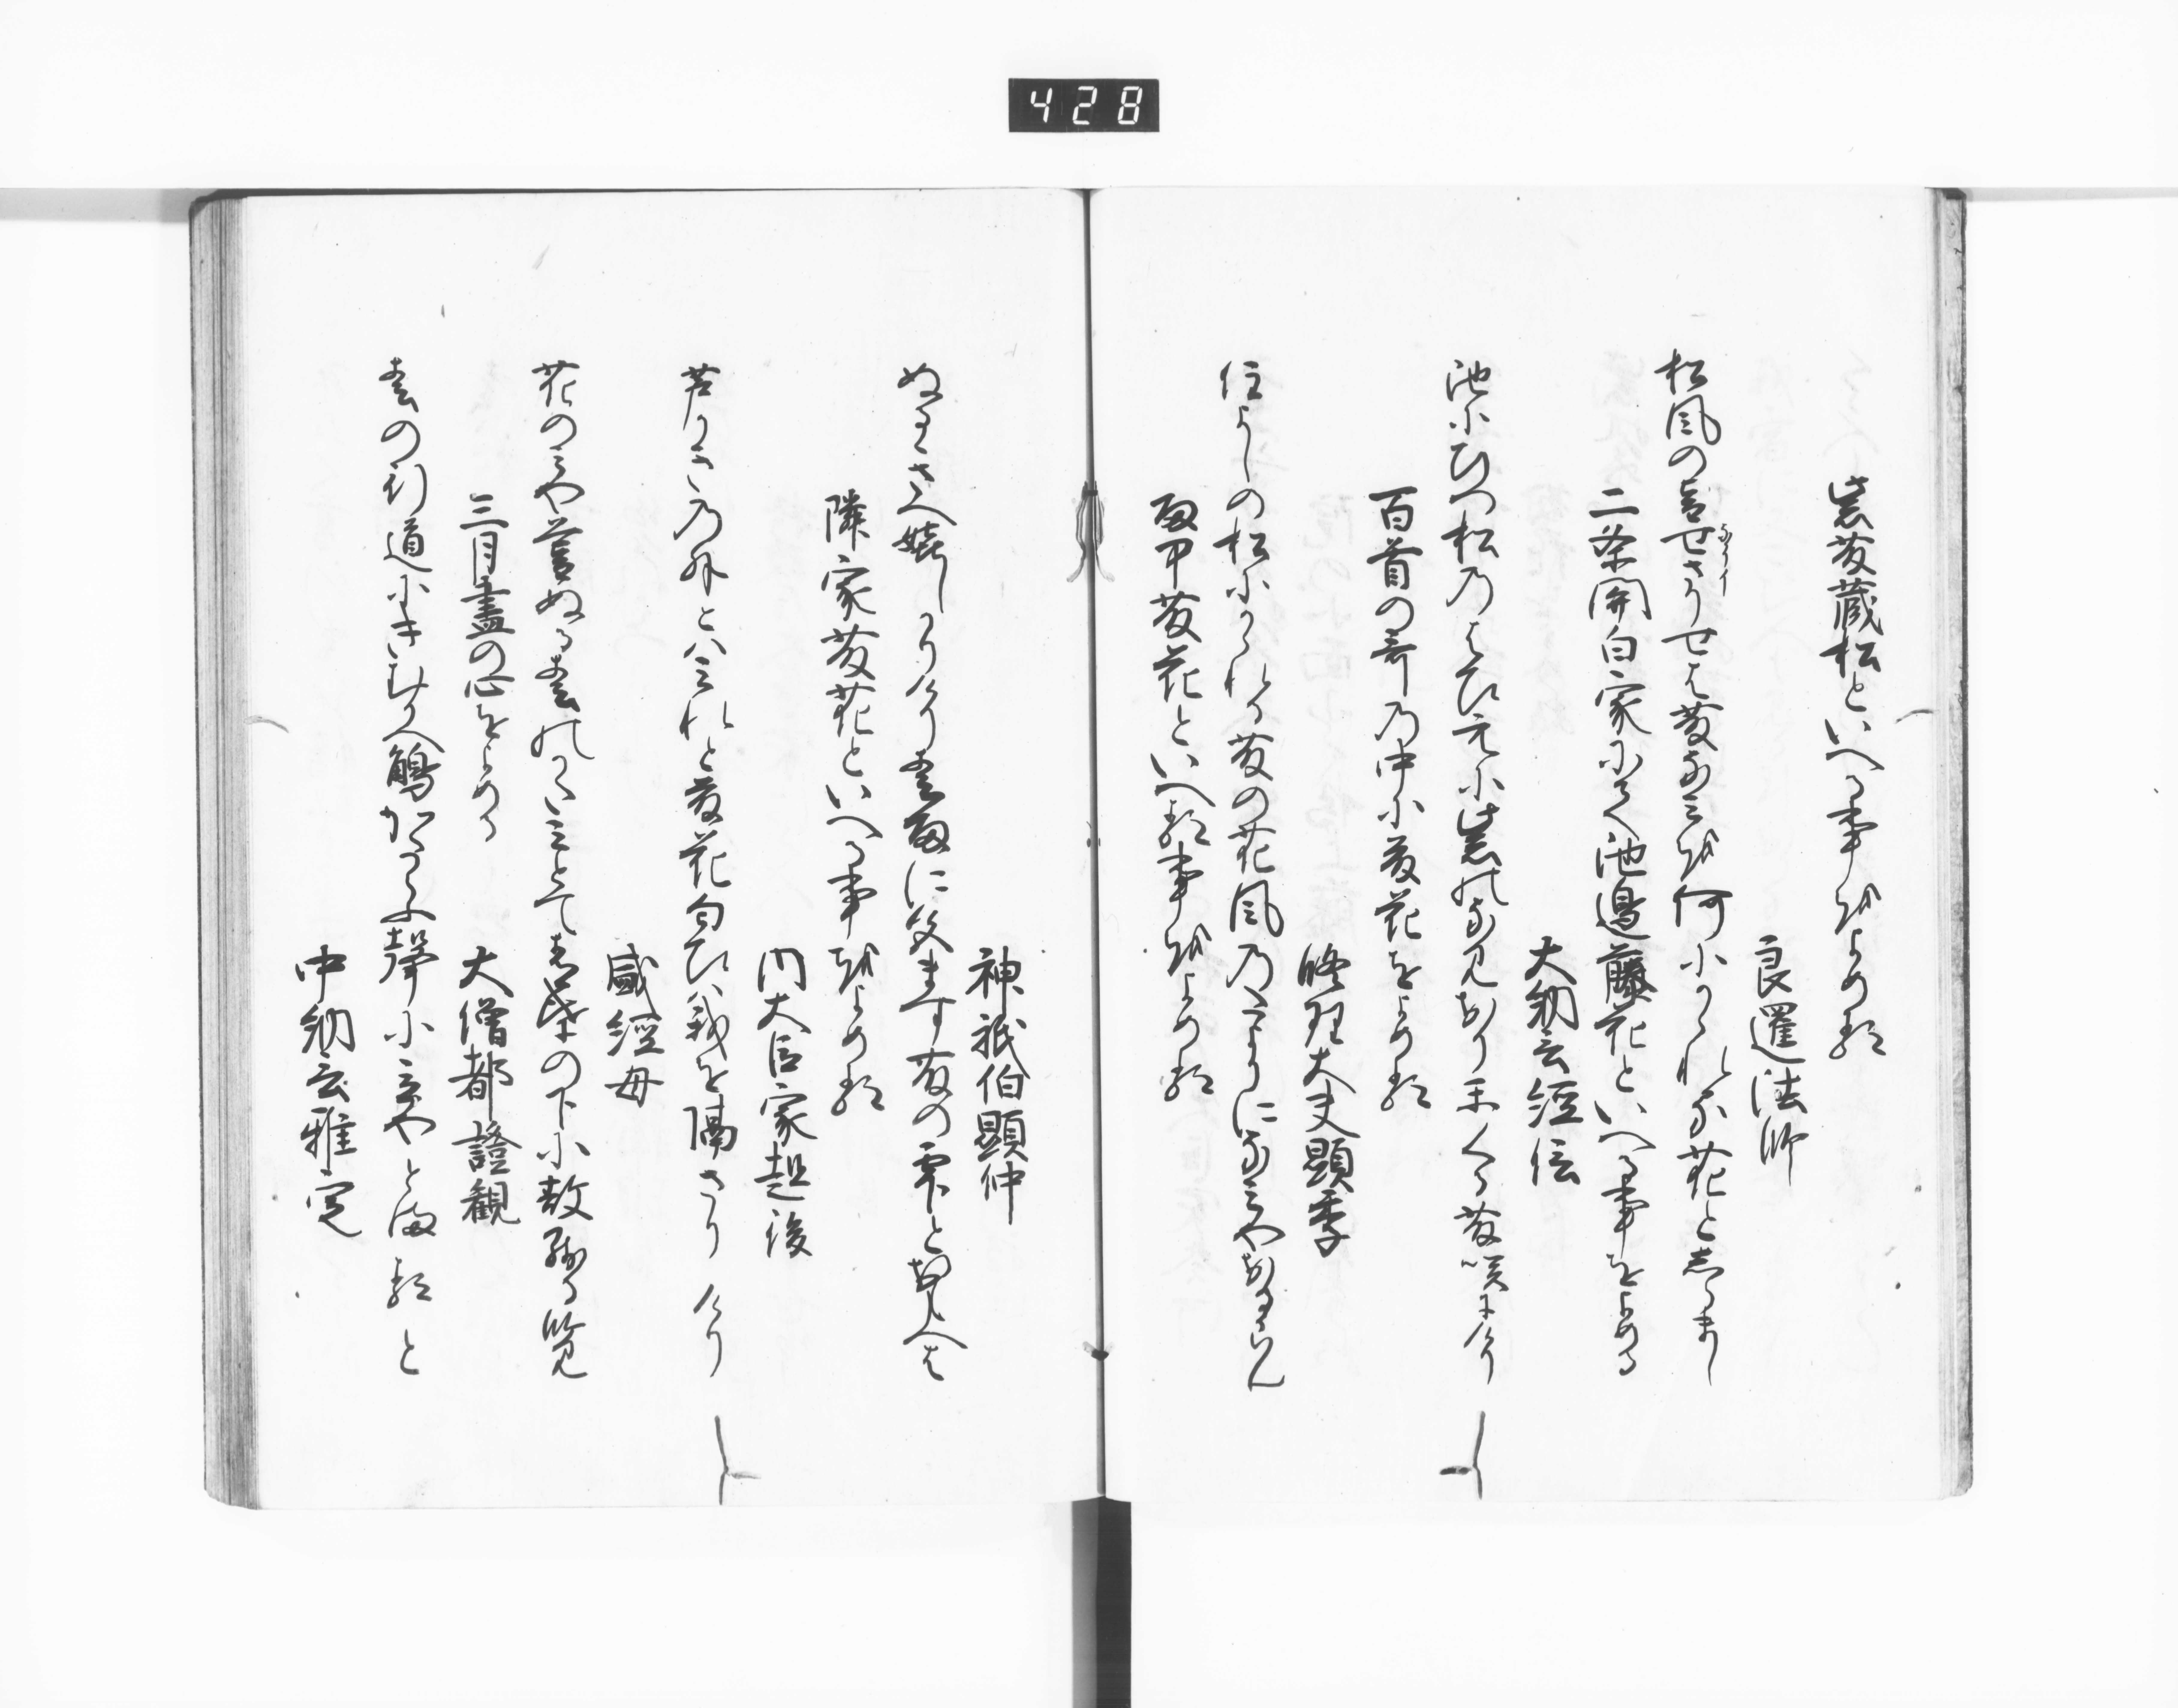 428
紫藤蔵松といへる事をよめる
良暹法師
松風の音せさりせは藤なみを何にかゝれる花としらまし
なかりイ
二条関白家にて池邊藤花といへる事をよめる
大納言経信
池にひつ松のはひ元に紫のなみ見おりかくる藤咲にけり
百首の哥の中に藤花をよめる
修理大夫顕季
住よしの松にかゝれる藤の花風のたよりになみやおるらん
雨中藤花といへる事をよめる
神祇伯顕仲
ぬるゝさへ嬉しかりけり春雨に色ます藤の雫とおもへは
隣家藤花といへる事をよめる
内大臣家越後
芦かきの外とはみれと藤花匂ひは我を隔さりけり
盛経母
花のみや暮ぬる春のかたみとて青柴の下に散残る覧
三月盡の心をよめる
大僧都證観
春の行道にきむかへ鶯かたらふ聲に立やとまると
中納言雅定